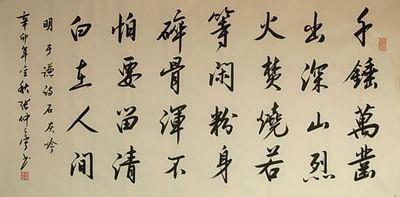 千錘萬鑿
出深山烈
火焚燒若
等闲粉身
碎骨渾不
怕要留清
白在人间
明于谦诗石灰吟
辛卯年金秋张仲亭书